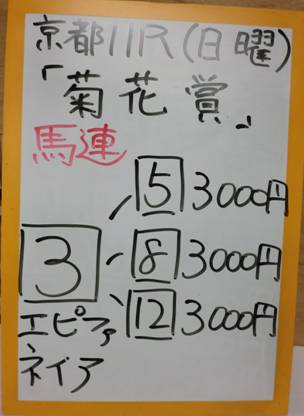 京都11R(日曜)
「菊花賞」
馬連
5 3000円
3 8 3000円
12 3000円
エピファ
ネイア